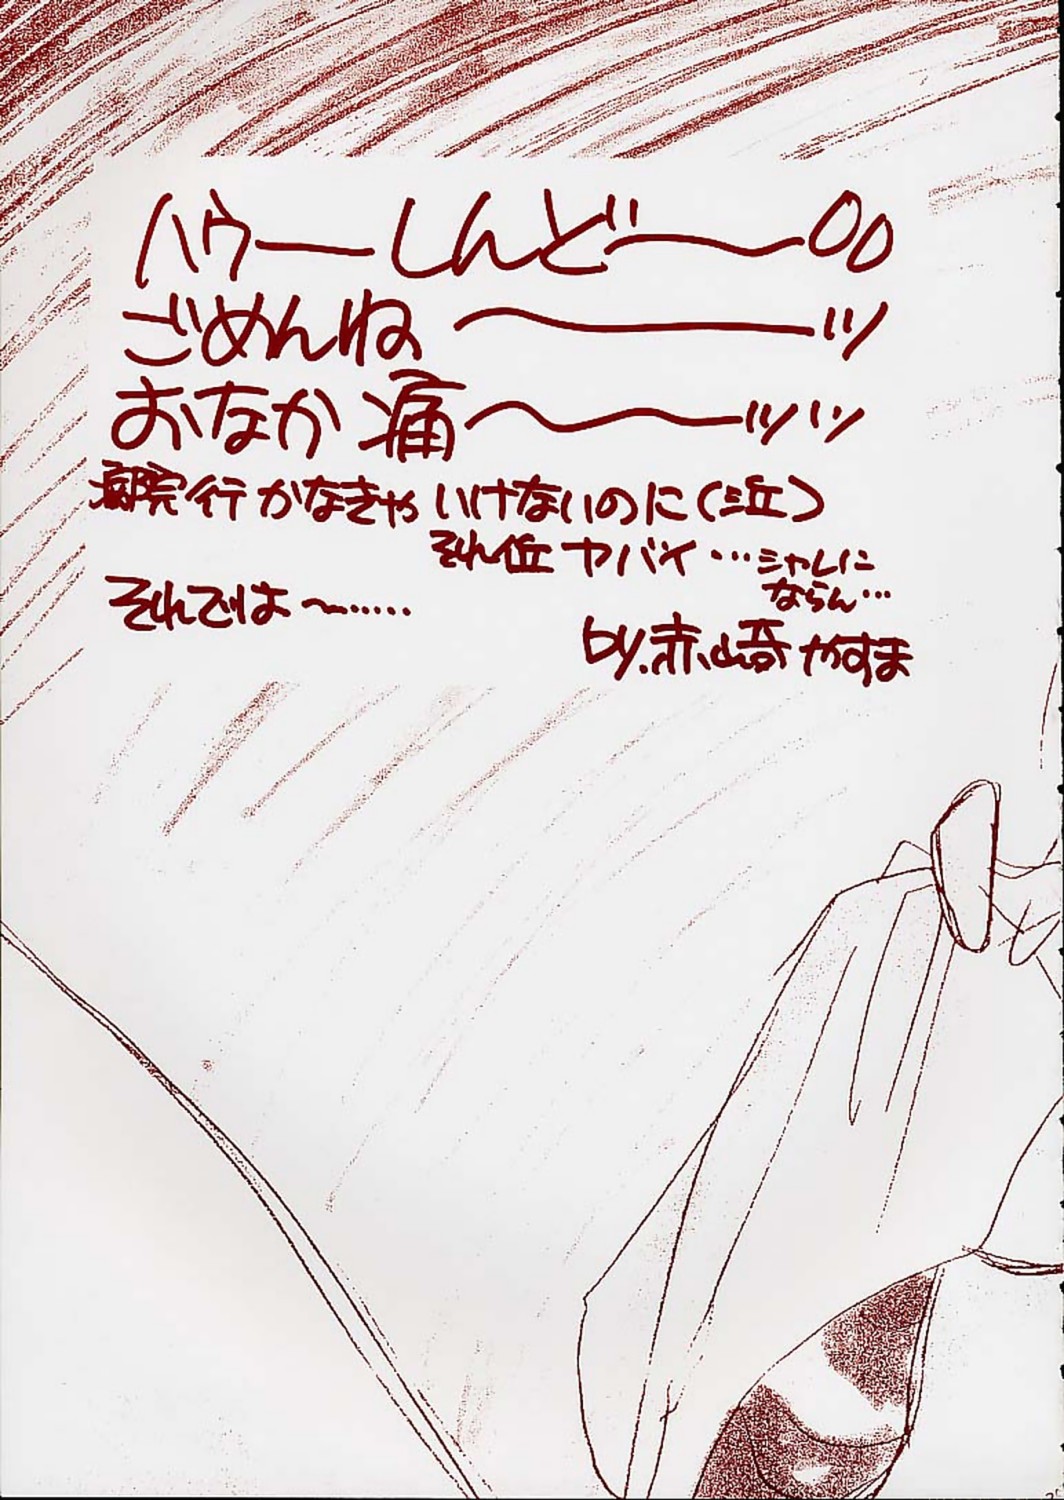 ハゥーしんどー〜〇〇
ごめんね〜ーッ
おなか痛〜〜ーッッッ
病院行かなきゃいけないのに（泣）
それ位ヤバイ…シャレに
ならん…
それでは〜……
by.赤崎やすま